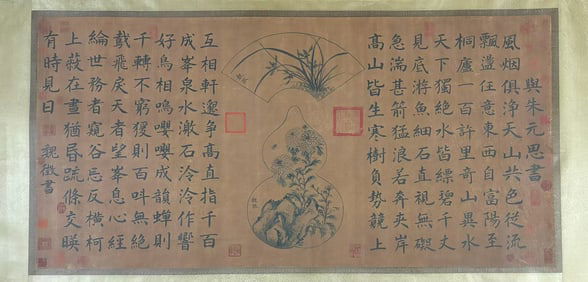 與朱元思書
風烟俱淨天山共色從流
飄蕩任意東西自富陽至
桐廬一百許里奇山異水
天下獨絶水皆縹碧千丈
見底游魚細石直視無礙
急湍甚箭猛浪若奔夾岸
高山皆生寒樹負勢競上
互相軒邈爭高直指千百
成峯泉水激石泠泠作響
好鳥相鳴嚶嚶成韻蟬則
千轉不窮猨則百叫無絶
鳶飛戾天者望峯息心經
綸世務者窺谷忘反橫柯
上蔽在晝猶昏疏條交暎
有時見日 魏徵書